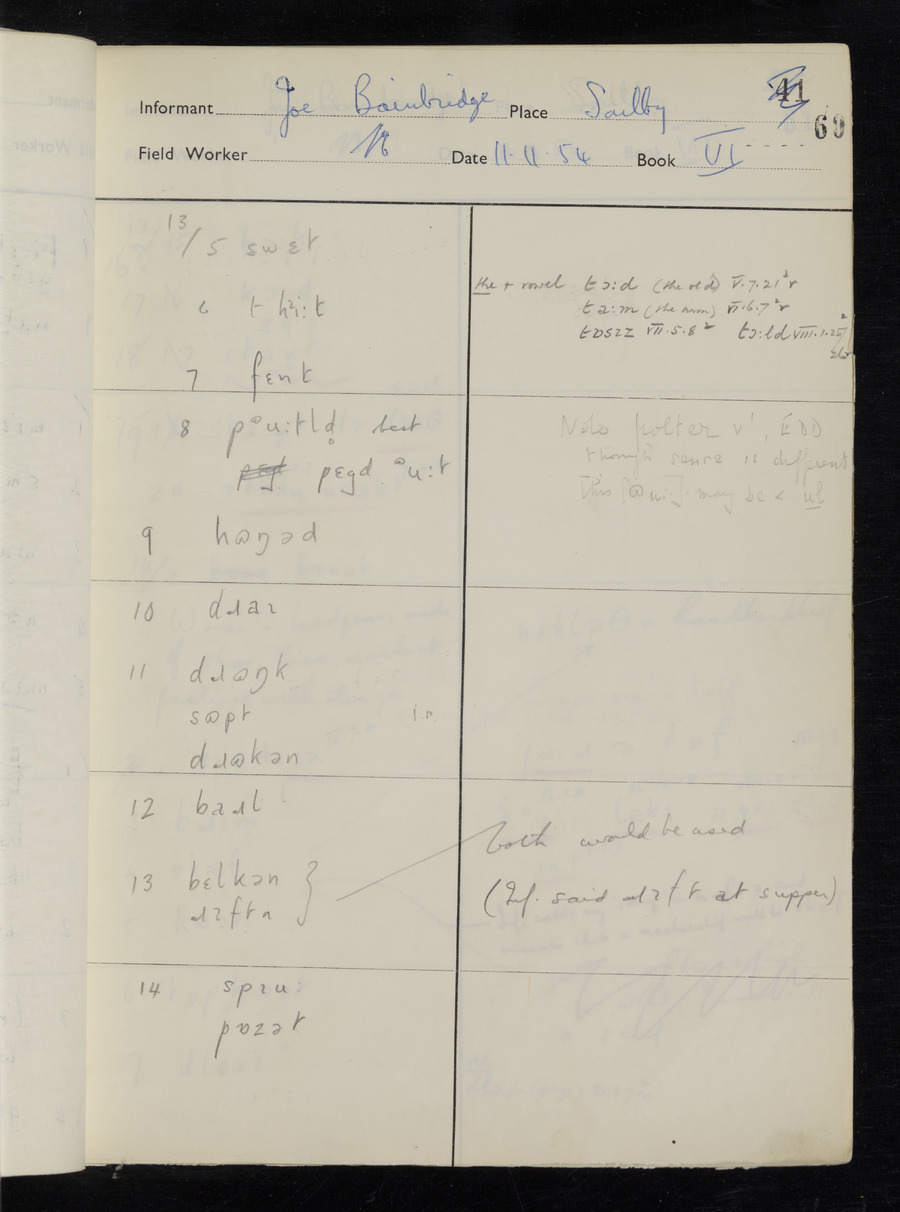 41
69
Informant Joe Bainbridge Place Soulby
Field Worker Date 11·11·54 Book VI
13/5 swɛt
6 t hɪ:t
7 fɛnt
the + vowel tɔ:d (the old) V.7.21
ta:m (the arm) VI.6.7
VII.5.8 VIII.1.25
8 best
pɛgd ᵊu:t
Note polter v¹, EDD
though sense is different
This may be <
9 hɷŋəd
10 dɹaɪ
11 dɹɷŋk
sɷpt i.r.
dɹɷkən
12 baɹl
13 bɛlkən
ɹɪftn
both would be used
(Inf. said ɹɪft at supper)
14 spɪu:
pɒzət